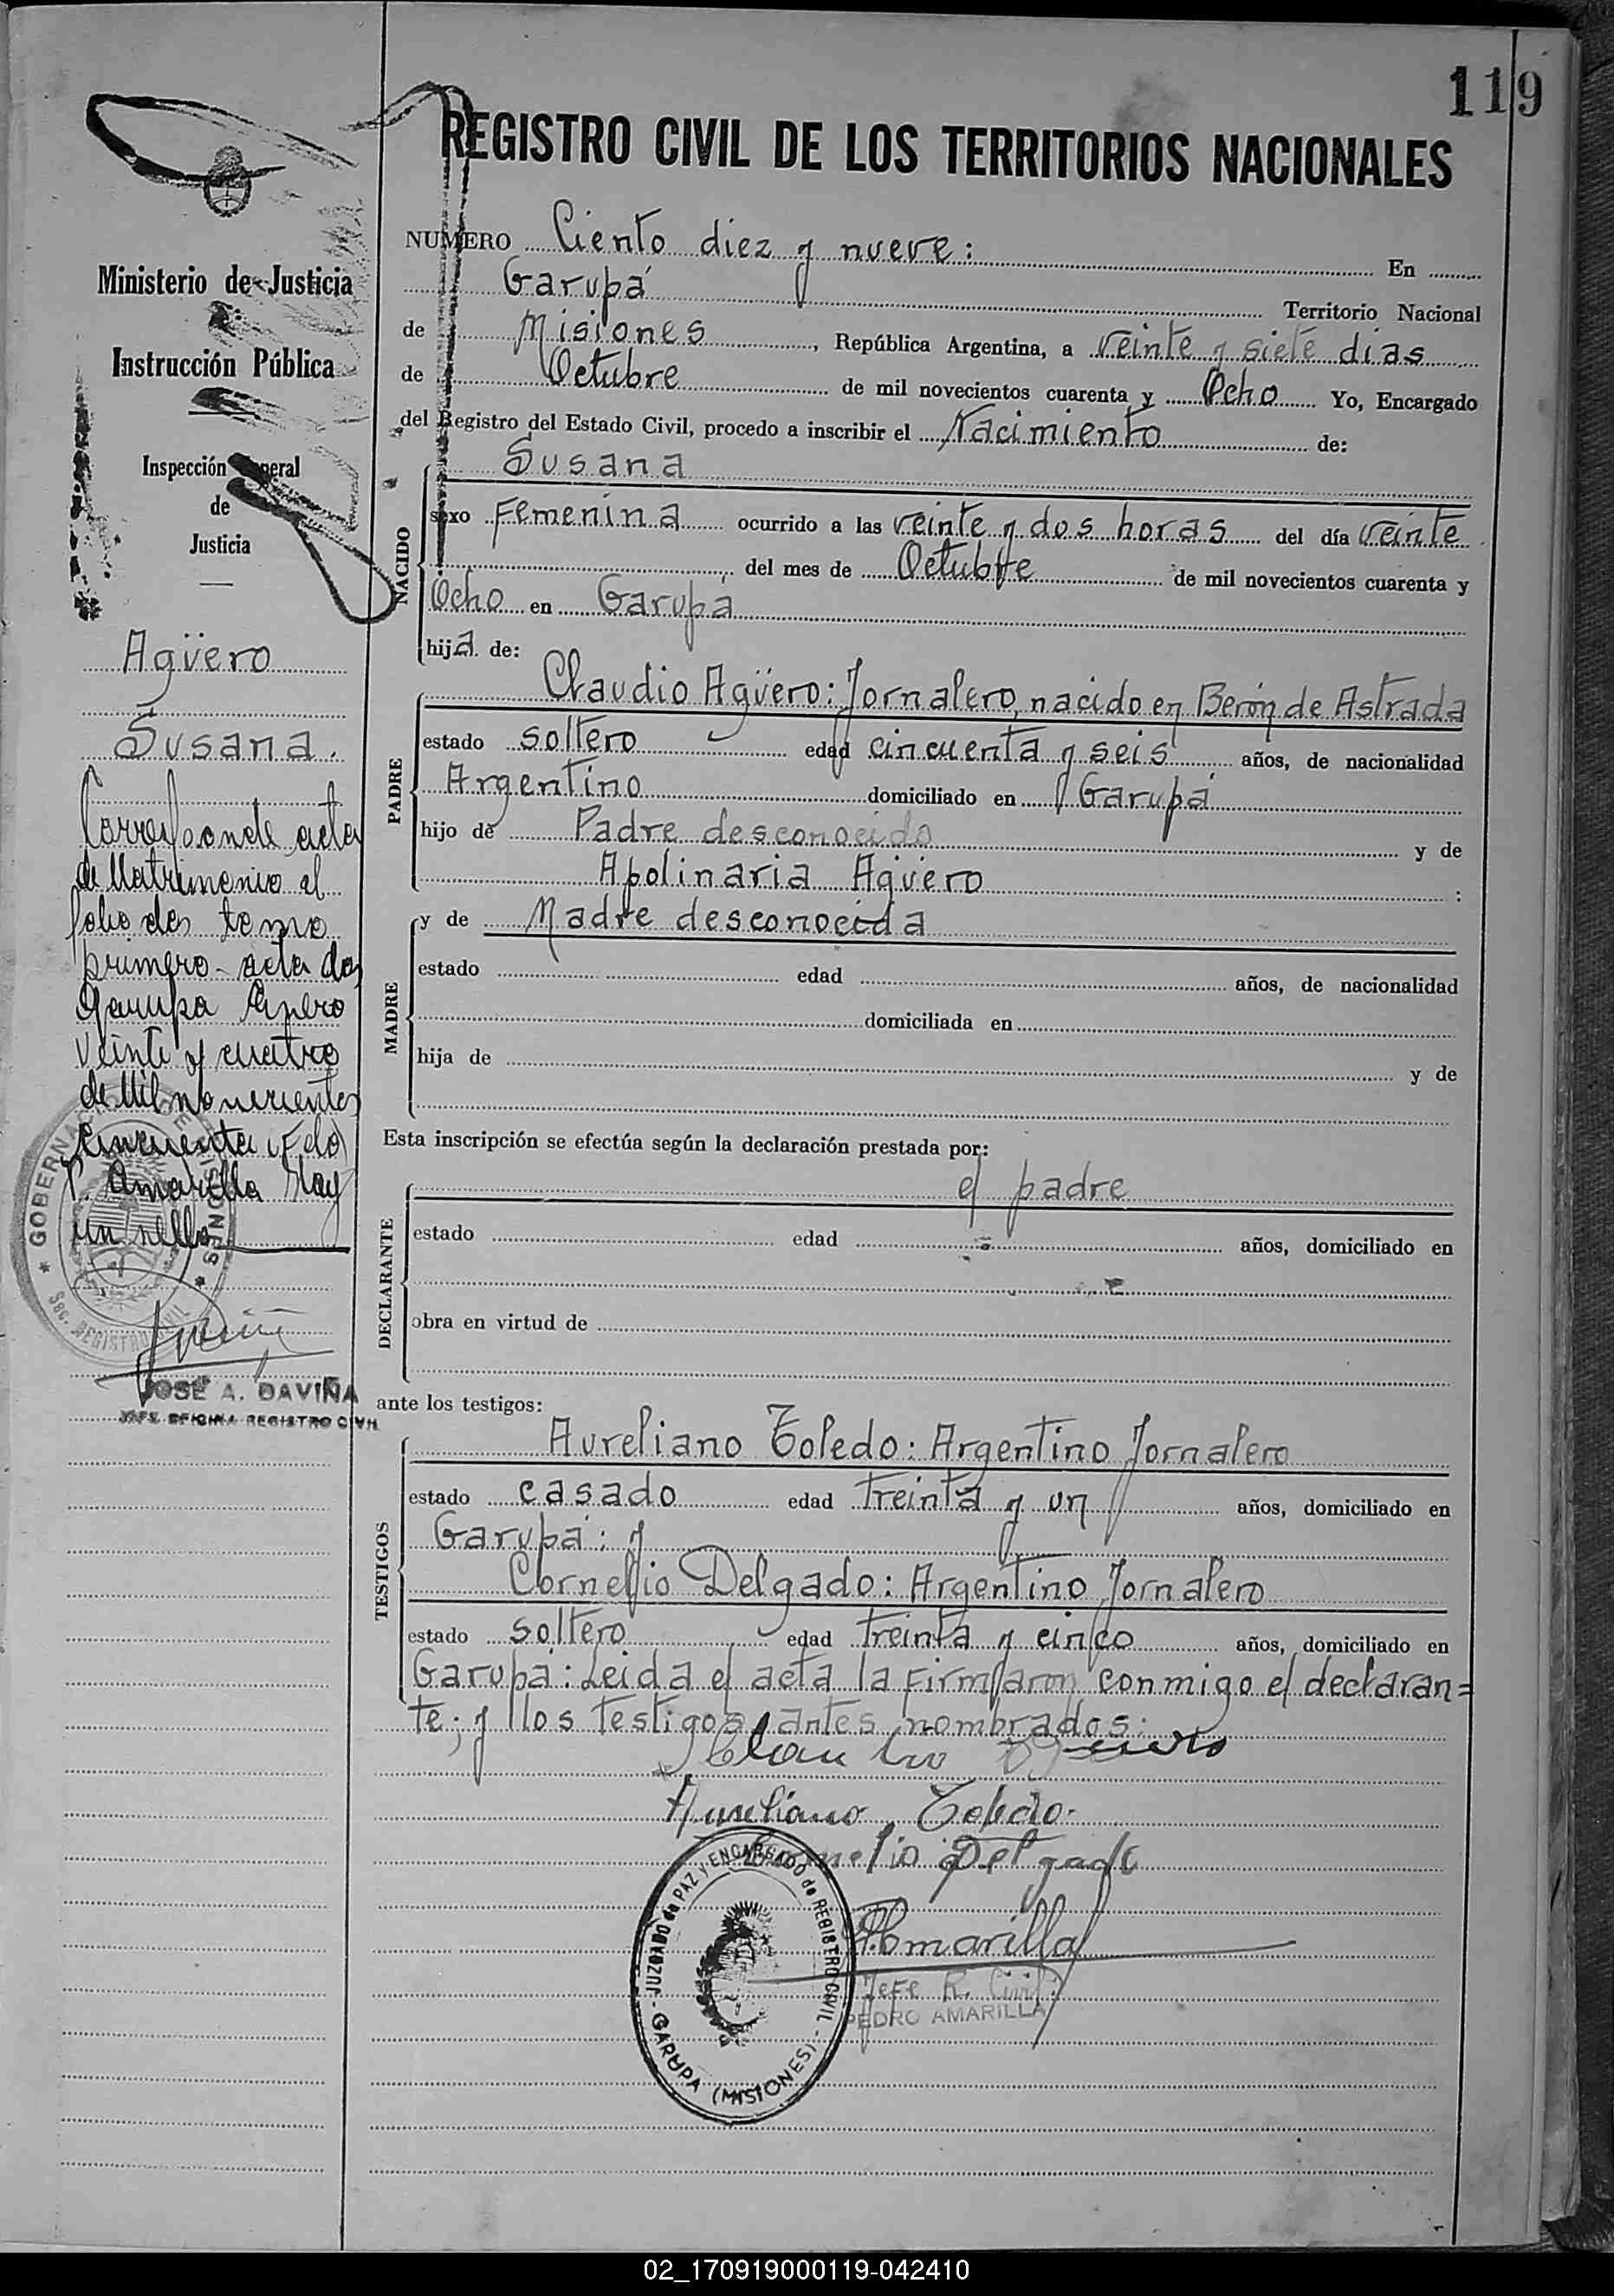 119
REGISTRO CIVIL DE LOS TERRITORIOS NACIONALES
Ministerio de Justicia
Instrucción Pública
Inspección General
de
Justicia
Agüero
Susana.
Corresponde acta
de Matrimonio al
folio dos tomo
primero - acta dos
Garupa Enero
veinte y cuatro
de Mil novecientos
cincuenta Fdo
P. Amarilla Hay
un sello
GOBERNACION DE MISIONES
Sec. REGISTRO CIVIL
JOSE A. DAVIÑA
JEFE OFICINA REGISTRO CIVIL
NUMERO Ciento diez y nueve: En
Garupá Territorio Nacional
de Misiones, República Argentina, a veinte y siete días
de Octubre de mil novecientos cuarenta y Ocho Yo, Encargado
del Registro del Estado Civil, procedo a inscribir el Nacimiento de:
NACIDO
Susana
sexo Femenina ocurrido a las veinte y dos horas del día veinte
del mes de Octubre de mil novecientos cuarenta y
Ocho en Garupá
hija de:
PADRE
Claudio Agüero: Jornalero, nacido en Berón de Astrada
estado soltero edad cincuenta y seis años, de nacionalidad
Argentino domiciliado en Garupá
hijo de Padre desconocido y de
Apolinaria Agüero :
MADRE
y de Madre desconocida
estado edad años, de nacionalidad
domiciliada en
hija de y de
Esta inscripción se efectúa según la declaración prestada por:
DECLARANTE
el padre
estado edad años, domiciliado en
obra en virtud de
ante los testigos:
TESTIGOS
Aureliano Toledo: Argentino Jornalero
estado casado edad treinta y un años, domiciliado en
Garupá: y
Cornelio Delgado: Argentino Jornalero
estado soltero edad treinta y cinco años, domiciliado en
Garupá: Leida el acta la firmaron conmigo el declaran=
te; y los testigos antes nombrados:
Claudio Aguero
Aureliano Toledo.
Cornelio Delgado
P. Amarilla
Jefe R. Civil
PEDRO AMARILLA
JUZGADO de PAZ Y ENCARGADO de REGISTRO CIVIL - GARUPA (MISIONES) -
02_170919000119-042410